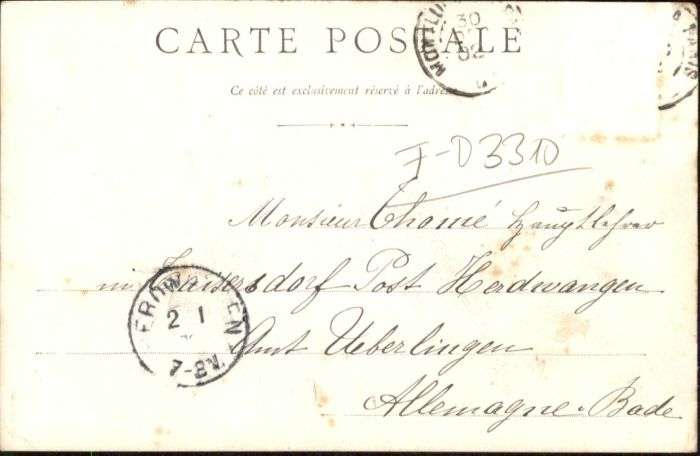 CARTE POSTALE
Ce côté est exclusivement réservé à l'adresse
MONTLU
30
02
PARIS
F-D 3310
Monsieur Thomé Hauptlehrer
in Kaisersdorf Post Herdwangen
Amt Ueberlingen
Allemagne. Bade
ERDW EN
2 1
7-8N.